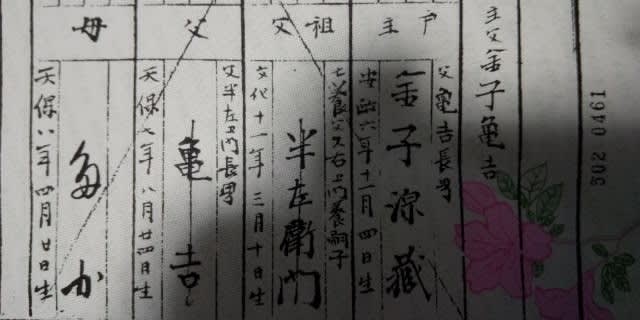 主父金子亀吉
戸主
父亀吉長男
金子源蔵
安政六年十一月四日生
祖父
半左衛門
文化十一年三月十日生
父
父半左衛門長男
亀吉
天保七年八月廿四日生
母
天保八年四月廿日生
302 0461